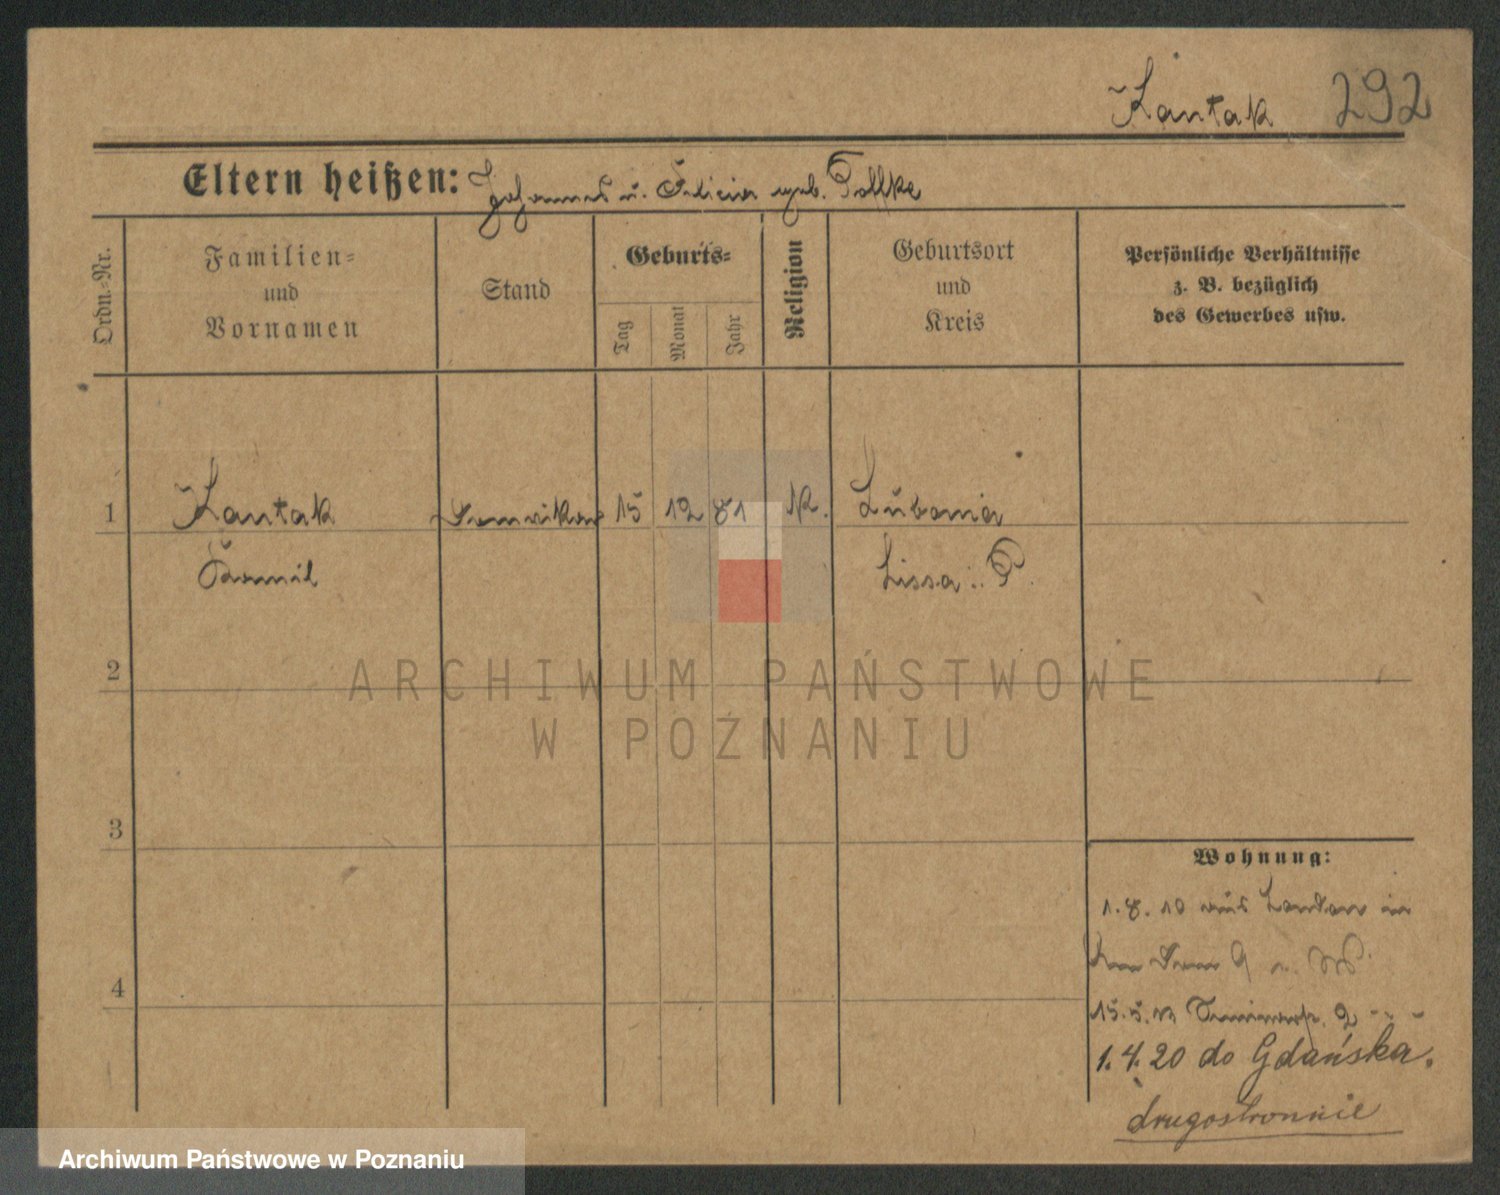 Kantak 292
Eltern heißen: Johannes u. Felicia geb.
Ordn.-Nr.
Familien-
und
Vornamen
Stand
Geburts-
Tag
Monat
Jahr
Religion
Geburtsort
und
Kreis
Persönliche Verhältnisse
z. B. bezüglich
des Gewerbes usw.
1 Kantak 15 12 81 K. Lubonia
Kamil Lissa i. P.
2
3
4
Wohnung:
1. 8. 10 aus London in
15. 5. 2
1. 4. 20 do Gdańska.
drugostronnie
ARCHIWUM PAŃSTWOWE
W POZNANIU
Archiwum Państwowe w Poznaniu